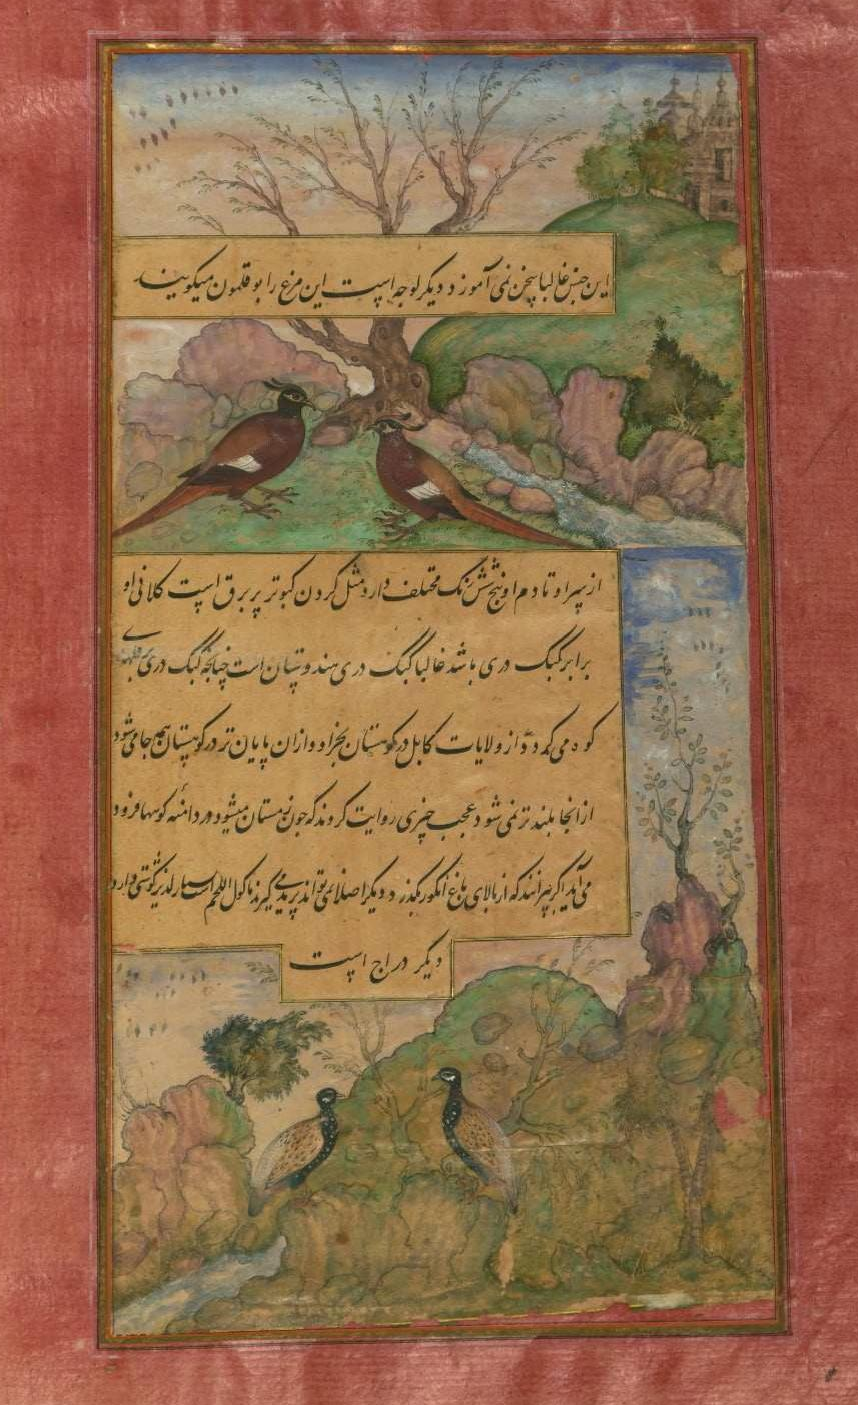 این جنس غالبا سخن نمی آموزد دیگر لوجه است این مرغ را بوقلمون میگویند
از سر او تا دم او پنج شش رنک مختلف دارد مثل کردن کبوتر پر برق است کلانی او
برابر کبک دری باشد غالبا کبک دری هندوستان است چنانچه کبک دری
کوه می کردد و از ولایات کابل در کوهستان بخراو و ازان پایان تر در کوهستان همه جا می شود
از آنجا بلند تر نمی شود عجب چیزی روایت کردند که چون زمستان میشود در دامنه کوهها فرود
می آید اکر پرانند که از بالای باغ انکور بکذرد دیکر اصلا نمی تواند پرید می کیرند ماکول اللحم است بسیار لذیذ کوشتی دارد
دیکر دراج است